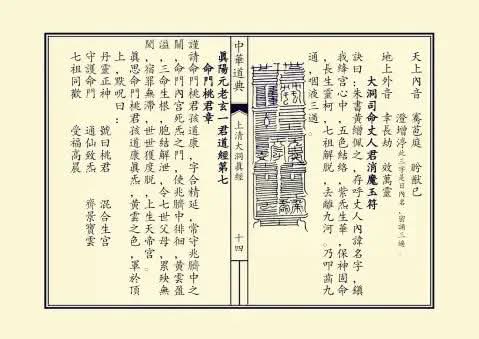 天上內音　鶱葩庭　盻獃已
地上外音　澄增渟此三字是日內名，密誦三遍。
幸長劫　效萬靈
大洞司命丈人君消魔玉符
訣曰：朱書黃繒佩之，存呼丈人內諱名字，鎮
我絳宮心中，五色結絡，紫炁生華，保神固命
，長生靈柯，七祖解脫，去離九河。乃叩齒九
通，咽液三過。
中華道典
上清大洞真經
十四
眞陽元老玄一君道經第七
命門桃君章
謹請命門桃君孩道康，字合精延，常守兆臍中之
關，命門內宮死炁之門，使兆臍中徘徊，黃雲盈
溢，三命生根，胞結解泄，令七世父母，累殃無
閡，宿罪無滯，世世獲度脫，上生天帝宮。
眞思命門桃君孩道康真炁，黃雲之色，罩於頂
上，默呪曰：
丹靈正神　號曰桃君　混合生宮
守護命門　通仙致炁　齊景寶雲
七祖同歡　受福高晨